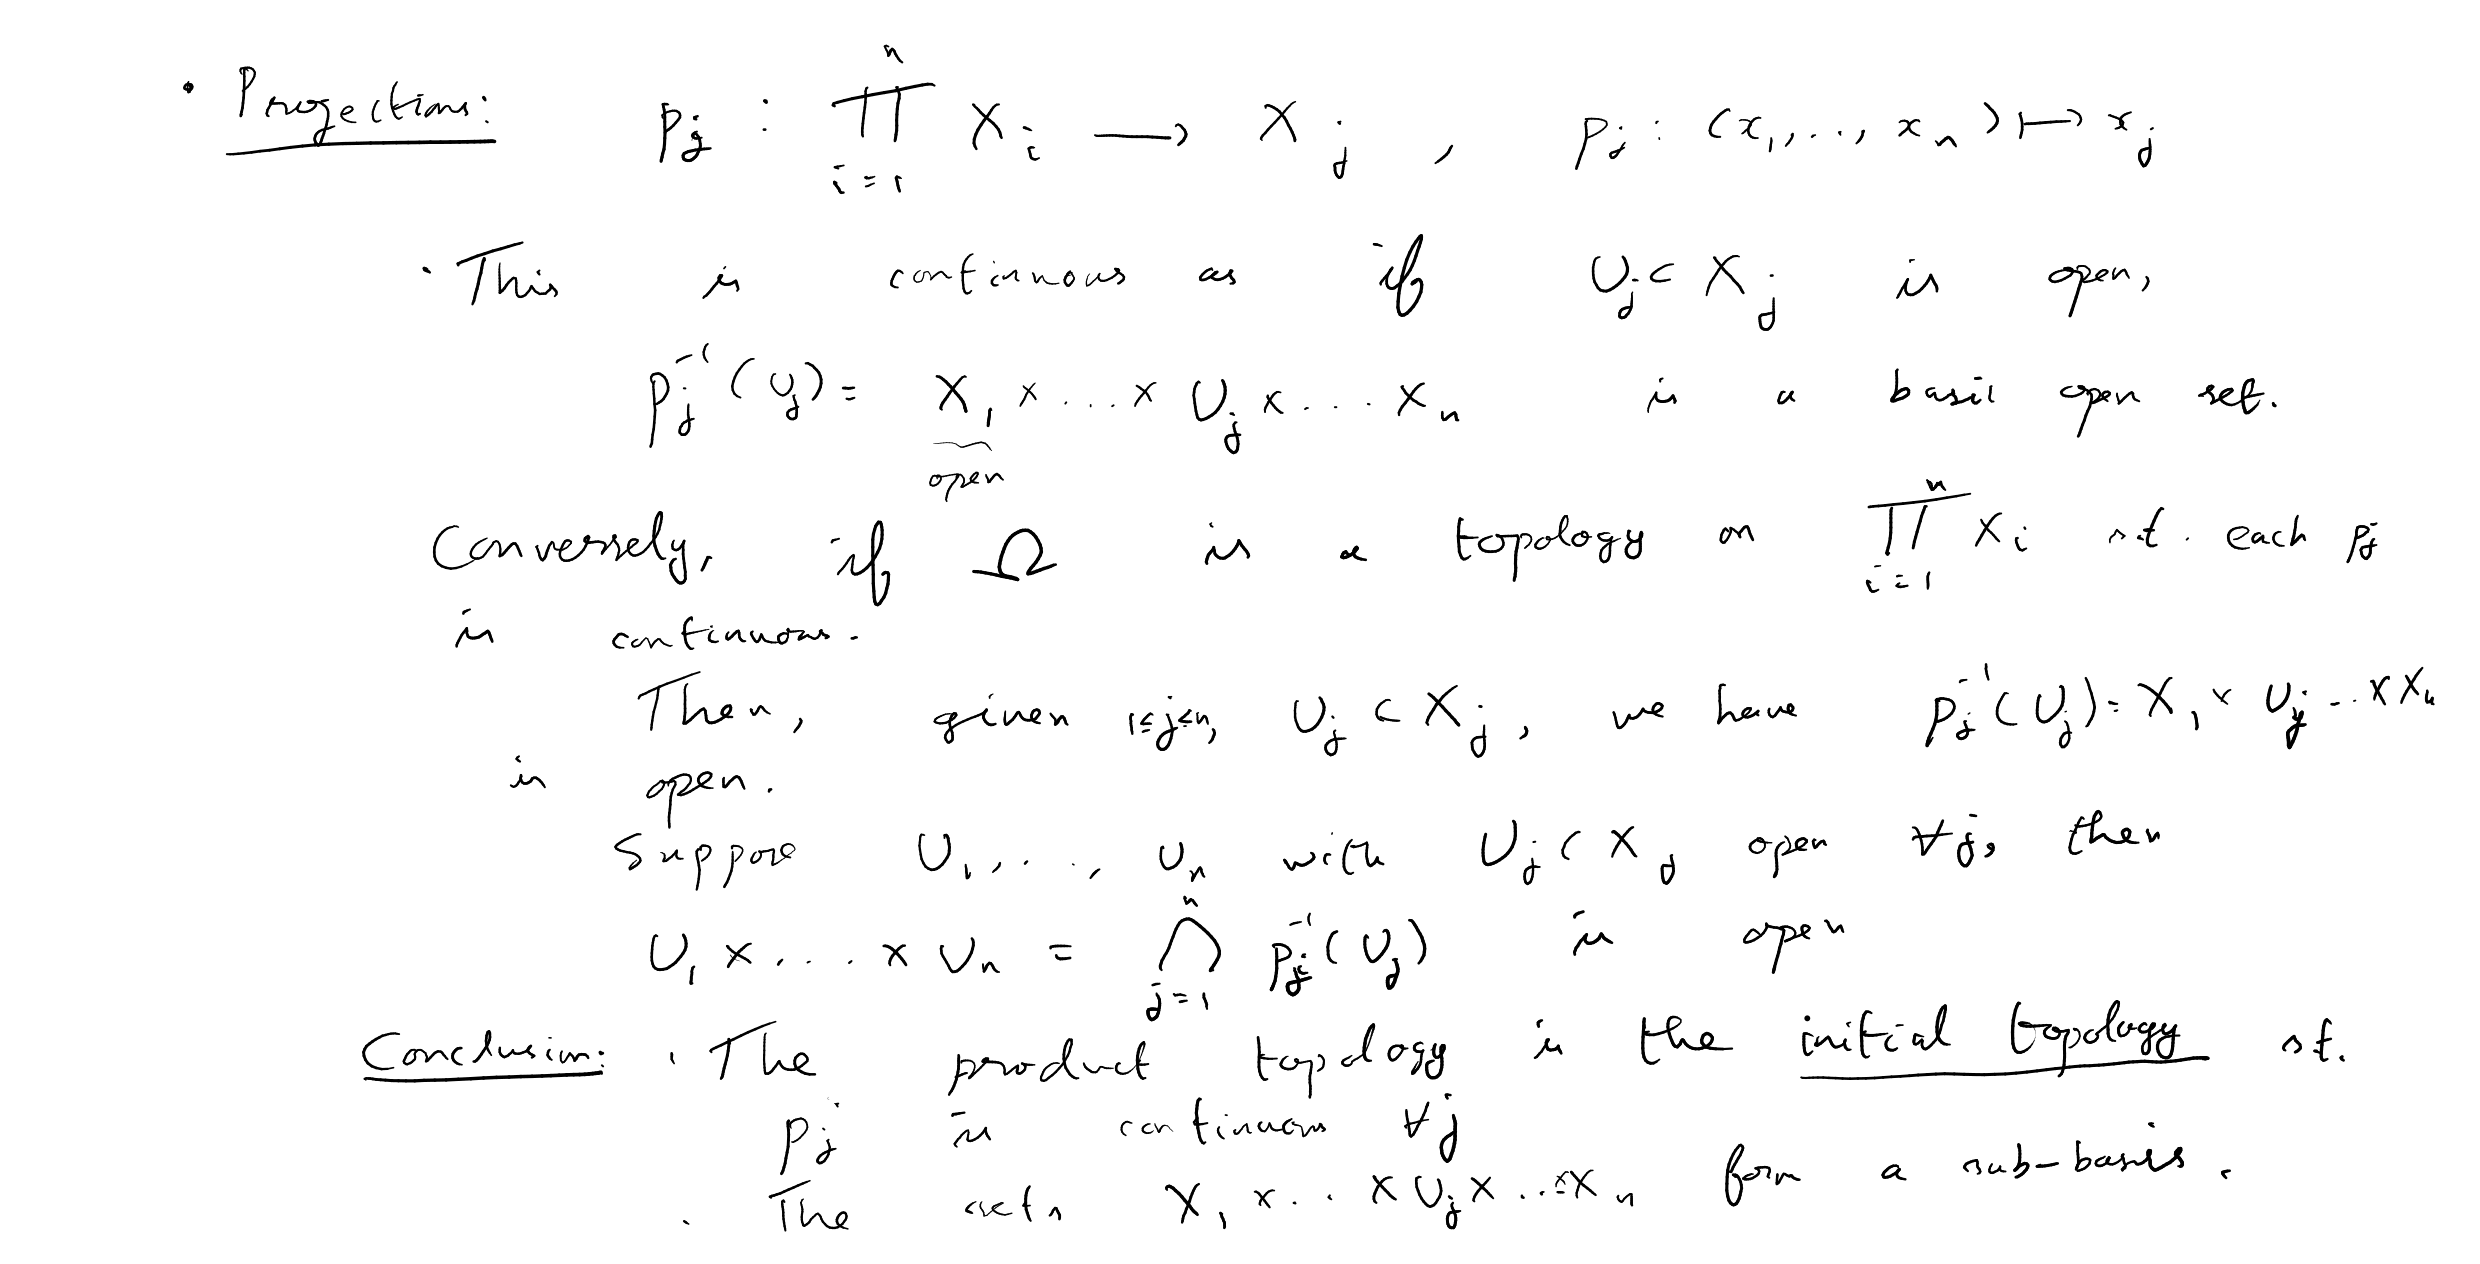 · Projections: p_j : ∏_{i=1}^{n} X_i ⟶ X_j , p_j : (x_1,..., x_n) ↦ x_j
· This is continuous as if U_j ⊂ X_j is open,
p_j^{-1}(U_j) = X_1 × ... × U_j × ... X_n is a basic open set.
open
Conversely, if Ω is a topology on ∏_{i=1}^{n} X_i s.t. each p_j
is continuous.
Then, given 1≤j≤n, U_j ⊂ X_j, we have p_j^{-1}(U_j) = X_1 × U_j ... × X_n
is open.
Suppose U_1, ..., U_n with U_j ⊂ X_j open ∀j, then
U_1 × ... × U_n = ⋂_{j=1}^{n} p_j^{-1}(U_j) is open
Conclusion: · The product topology is the initial topology s.t.
p_j is continuous ∀j
· The sets X_1 × ... × U_j × ... × X_n form a sub-basis.